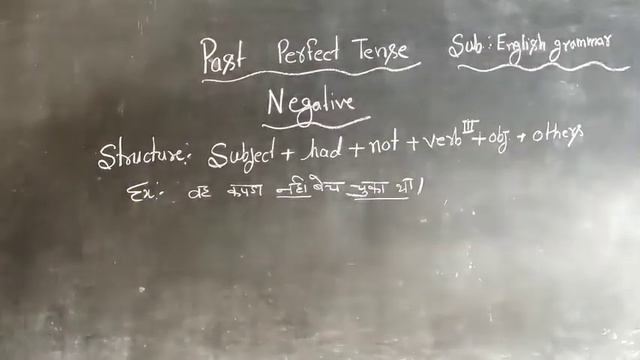 Past Perfect Tense Sub: English grammar
Negative
Structure: Subject + had + not + verb III + obj + others
Ex:- वह कपड़ा नहीं बेच चुका था।